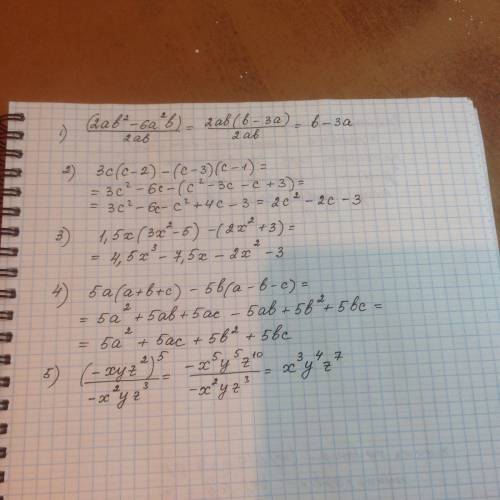 1) (2ab² - 6a²b)/2ab = 2ab(b - 3a)/2ab = b - 3a
2) 3c(c-2) - (c-3)(c-1) =
= 3c² - 6c - (c² - 3c - c + 3) =
= 3c² - 6c - c² + 4c - 3 = 2c² - 2c - 3
3) 1,5x(3x² - 5) - (2x² + 3) =
= 4,5x³ - 7,5x - 2x² - 3
4) 5a(a+b+c) - 5b(a-b-c) =
= 5a² + 5ab + 5ac - 5ab + 5b² + 5bc =
= 5a² + 5ac + 5b² + 5bc
5) (-xyz²)⁵/-x²yz³ = -x⁵y⁵z¹⁰/-x²yz³ = x³y⁴z⁷